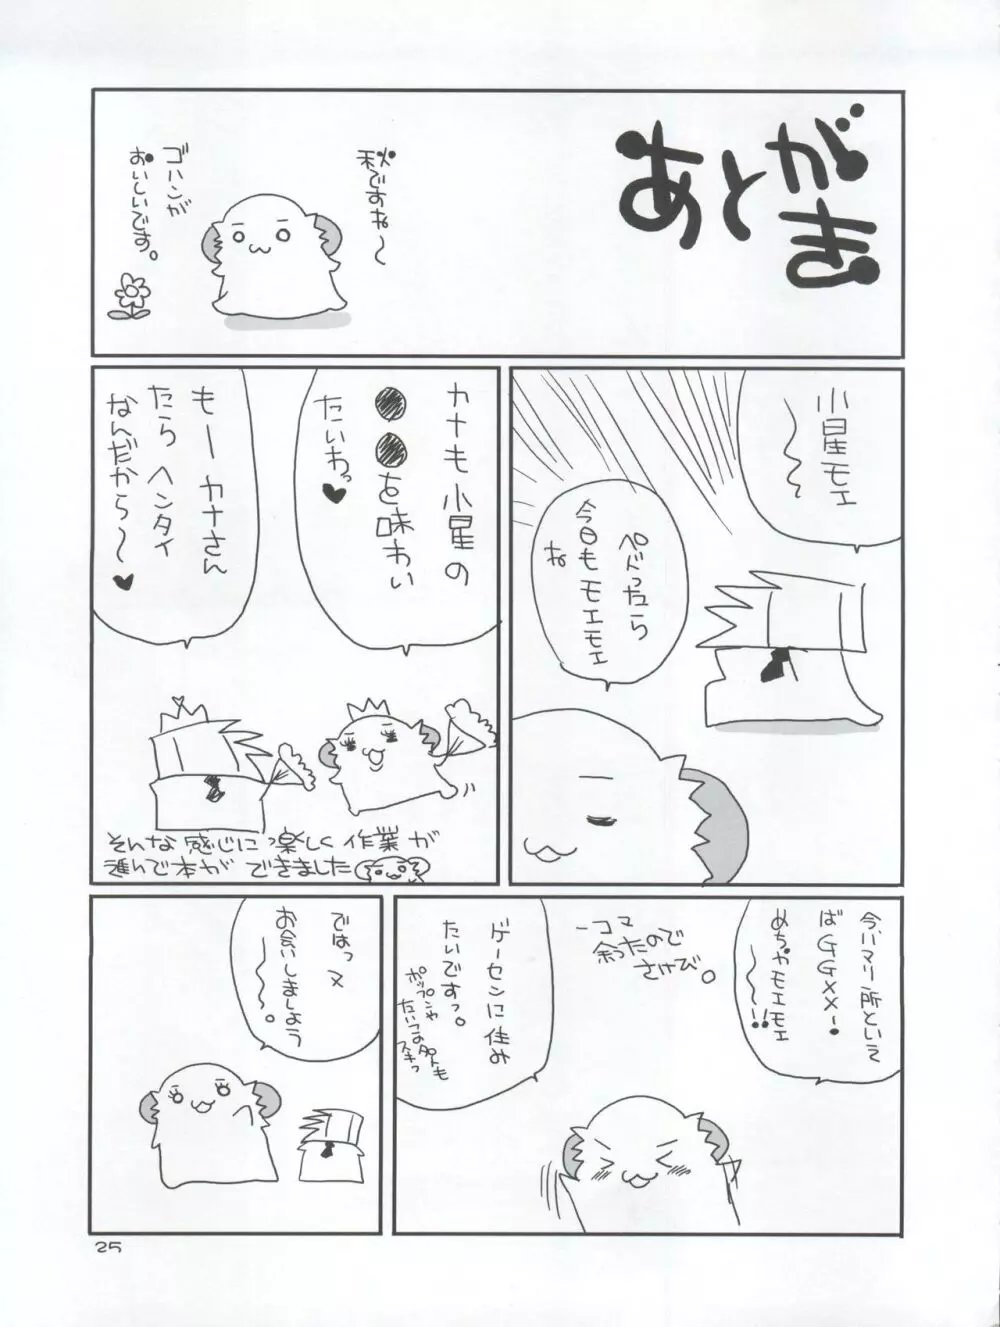 あとがき
秋ですね〜
ゴハンが
おいしいです。
小星モエ
〜〜
ペドったら
今日もモエモエ
ね
カナも小星の
●●を味わい
たいわっ♥
もーカナさん
たら ヘンタイ
なんだから〜♥
そんな感じに楽しく作業が
進んで本ができました
今ハマリ所といえ
ばGGXX〜。
めちゃモエモエ
〜〜!!
一コマ
余ったので
さけび。
ゲーセンに住み
たいですっ。
ポップンや
スキっ
ではっ又
お会いしましょう
〜〜。
25